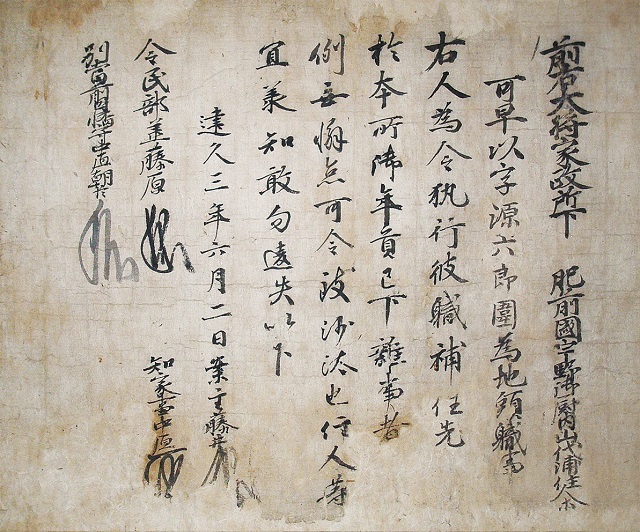 前右大将家政所下 肥前國宇野御厨内山代浦住人等
可早以字源六郎囲為地頭職事
右人為令執行彼職補任先
於本所御年貢已下雑事者
例無懈怠可令致沙汰也住人等
宜承知敢勿違失以下
建久三年六月二日案主藤井
知家事中原
令民部少丞藤原
別當前因幡守中原朝臣